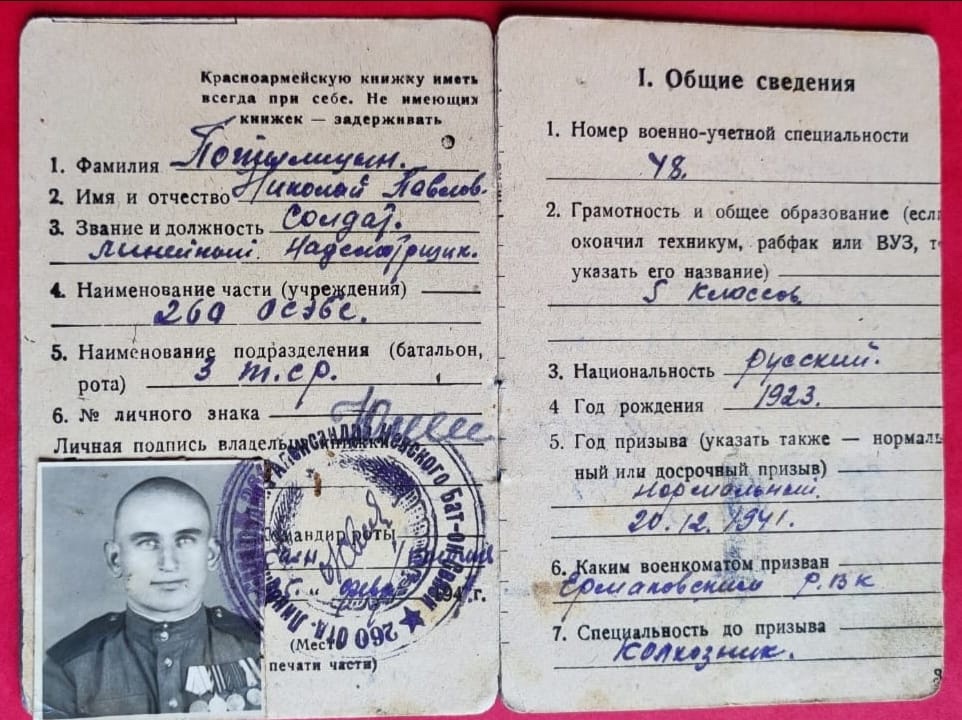 Красноармейскую книжку иметь
всегда при себе. Не имеющих
книжек — задерживать
1. Фамилия
2. Имя и отчество Николай Павлов.
3. Звание и должность Солдат.
линейный Надсмотрщик.
4. Наименование части (учреждения)
260 ОСЭБС.
5. Наименование подразделения (батальон,
рота) 3 т.ср.
6. № личного знака
Личная подпись владельца книжки
Командир роты
194 г.
(Место
печати части)
260 Отд. Лин
I. Общие сведения
1. Номер военно-учетной специальности
48.
2. Грамотность и общее образование (если
окончил техникум, рабфак или ВУЗ, т
указать его название)
5 классов
3. Национальность русский.
4 Год рождения 1923.
5. Год призыва (указать также — нормаль
ный или досрочный призыв)
Нормальный.
20.12.1941.
6. Каким военкоматом призван
Ермаковским Р.В к
7. Специальность до призыва
Колхозник.